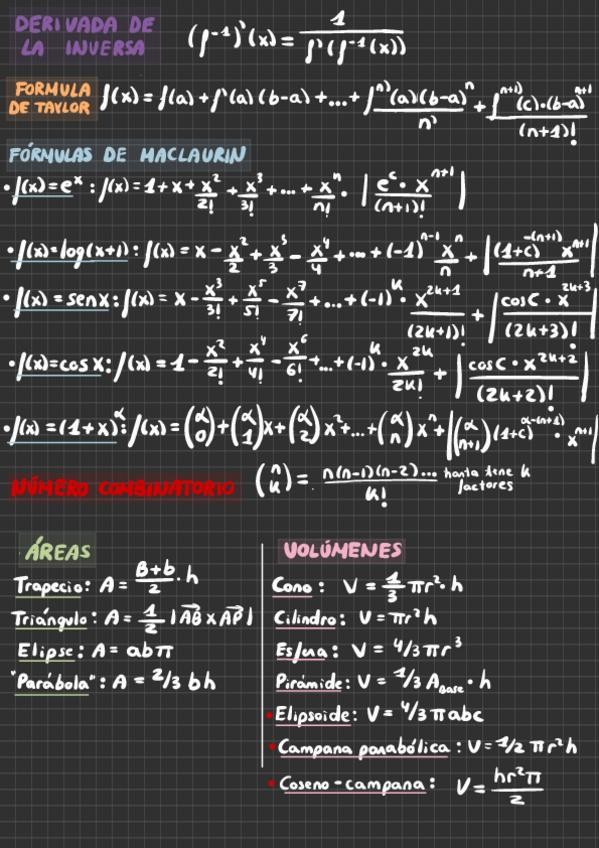 DERIVADA DE
LA INVERSA
(f⁻¹)'(x) = 1 / f'(f⁻¹(x))
FORMULA
DE TAYLOR
f(x) = f(a) + f'(a)(b-a) + ... + fⁿ⁾(a)(b-a)ⁿ / n! + fⁿ⁺¹⁾(c)·(b-a)ⁿ⁺¹ / (n+1)!
FÓRMULAS DE MACLAURIN
• f(x) = eˣ : f(x) = 1 + x + x²/2! + x³/3! + ... + xⁿ/n! · | e^c · xⁿ⁺¹ / (n+1)! |
• f(x) = log(x+1) : f(x) = x - x²/2 + x³/3 - x⁴/4 + ... + (-1)ⁿ⁻¹ xⁿ/n + | (1+c)^-(n+1) xⁿ⁺¹ / n+1 |
• f(x) = sen x : f(x) = x - x³/3! + x⁵/5! - x⁷/7! + ... + (-1)^k · x^2k+1 / (2k+1)! + | cos c · x^2k+3 / (2k+3)! |
• f(x) = cos x : f(x) = 1 - x²/2! + x⁴/4! - x⁶/6! + ... + (-1)^k · x^2k / 2k! + | cos c · x^2k+2 / (2k+2)! |
• f(x) = (1+x)^α : f(x) = (α 0) + (α 1)x + (α 2)x² + ... + (α n)xⁿ + | (α n+1)(1+c)^α-(n+1) · xⁿ⁺¹ |
NÚMERO COMBINATORIO
(n k) = n(n-1)(n-2)... / k! hasta tene k
factores
ÁREAS
Trapecio: A = B+b/2 · h
Triángulo: A = 1/2 |AB x AP|
Elipse: A = abπ
"Parábola": A = 2/3 bh
VOLÚMENES
Cono: V = 1/3 πr² · h
Cilindro: V = πr²h
Esfera: V = 4/3 πr³
Pirámide: V = 1/3 A_Base · h
• Elipsoide: V = 4/3 πabc
• Campana parabólica: V = 1/2 πr²h
• Coseno-campana: V = hr²π / 2